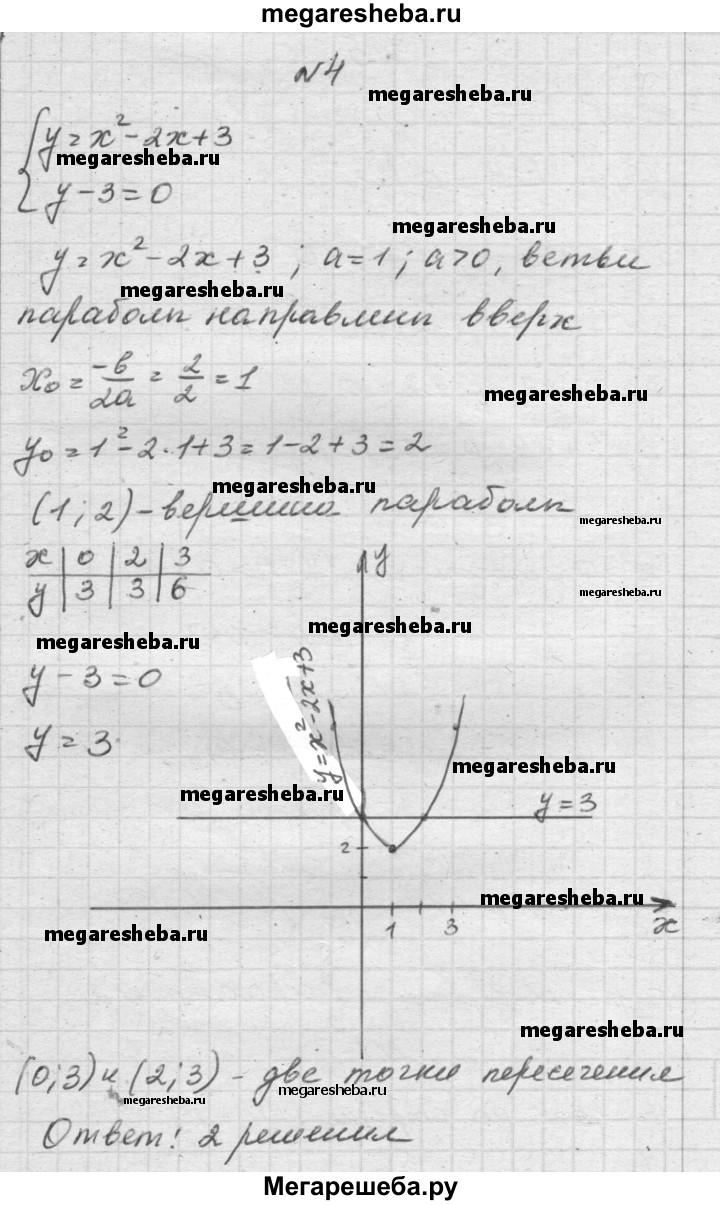 megaresheba.ru
№4
megaresheba.ru
y=x²-2x+3
megaresheba.ru
y-3=0
megaresheba.ru
y=x²-2x+3; a=1; a>0, ветви
megaresheba.ru
параболы направлены вверх
x₀=-b/2a=2/2=1
megaresheba.ru
y₀=1²-2·1+3=1-2+3=2
megaresheba.ru
(1;2)-вершина параболы
megaresheba.ru
x | 0 | 2 | 3
y | 3 | 3 | 6
y
megaresheba.ru
megaresheba.ru
megaresheba.ru
y-3=0
y=3
y=x²-2x+3
megaresheba.ru
megaresheba.ru
y=3
2
megaresheba.ru
1 3 x
megaresheba.ru
megaresheba.ru
megaresheba.ru
(0;3) и (2;3) - две точки пересечения
megaresheba.ru
megaresheba.ru
megaresheba.ru
Ответ: 2 решения
Мегарешеба.ру